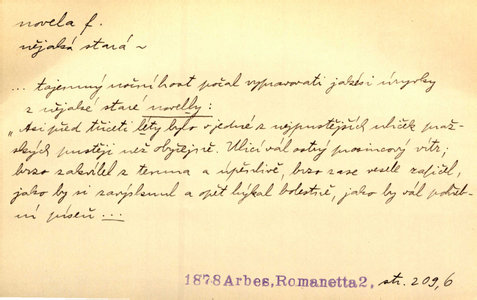 novela f.
nějaká stará ~
... tajemný noční host počal vypravovati jakési úryvky
z nějaké staré novelly:
„Asi před třiceti léty bylo v jedné z nejpustějších uliček praž-
ských pustěji než obyčejně. Ulicí vál ostrý prosincový vítr;
brzo zakvílel z temna a úpěnlivě, brzo zase vesele zafičel,
jako by si zavýsknul a opět lkal bolestně, jako by vál pohřeb-
ní píseň ...
1878 Arbes, Romanetta 2, str. 209,6